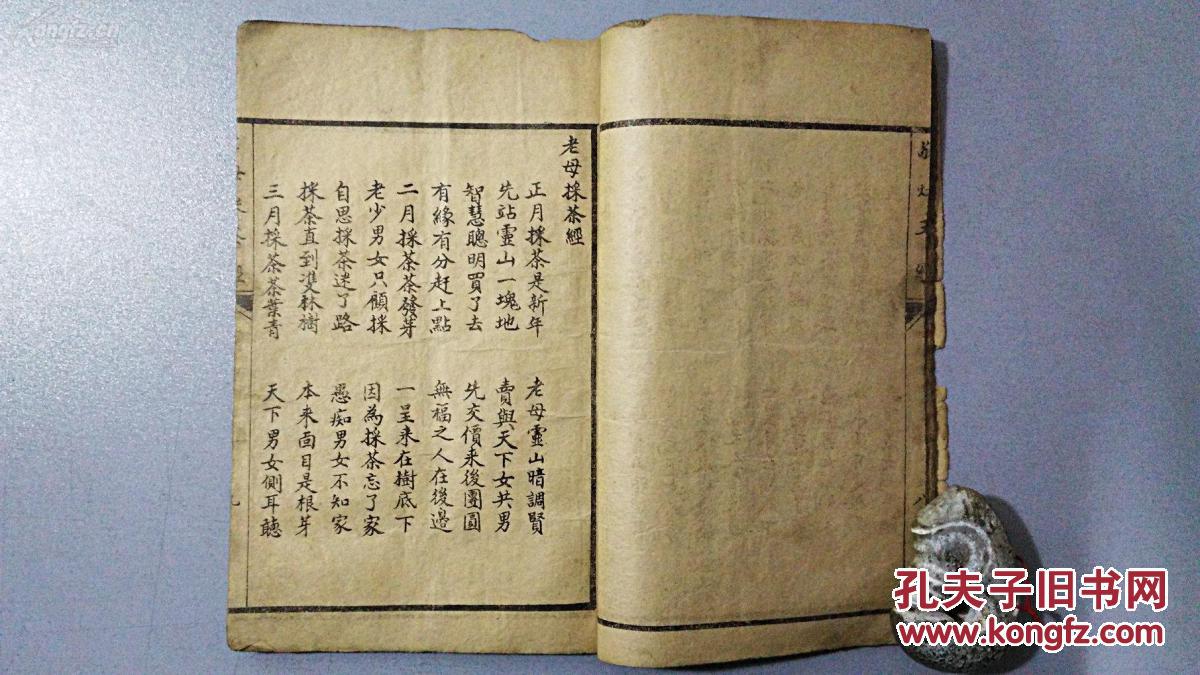 老母採茶經
正月採茶是新年 老母靈山暗調賢
先站靈山一塊地 賣與天下女共男
智慧聰明買了去 先交價來後團圓
有緣有分赶上點 無福之人在後邊
二月採茶茶發芽 一呈来在樹底下
老少男女只顧採 因為採茶忘了家
自思採茶迷了路 愚痴男女不知家
採茶直到雙林樹 本来面目是根芽
三月採茶茶葉青 天下男女側耳聽
九
八
孔夫子旧书网
www.kongfz.com
kongfz.cn